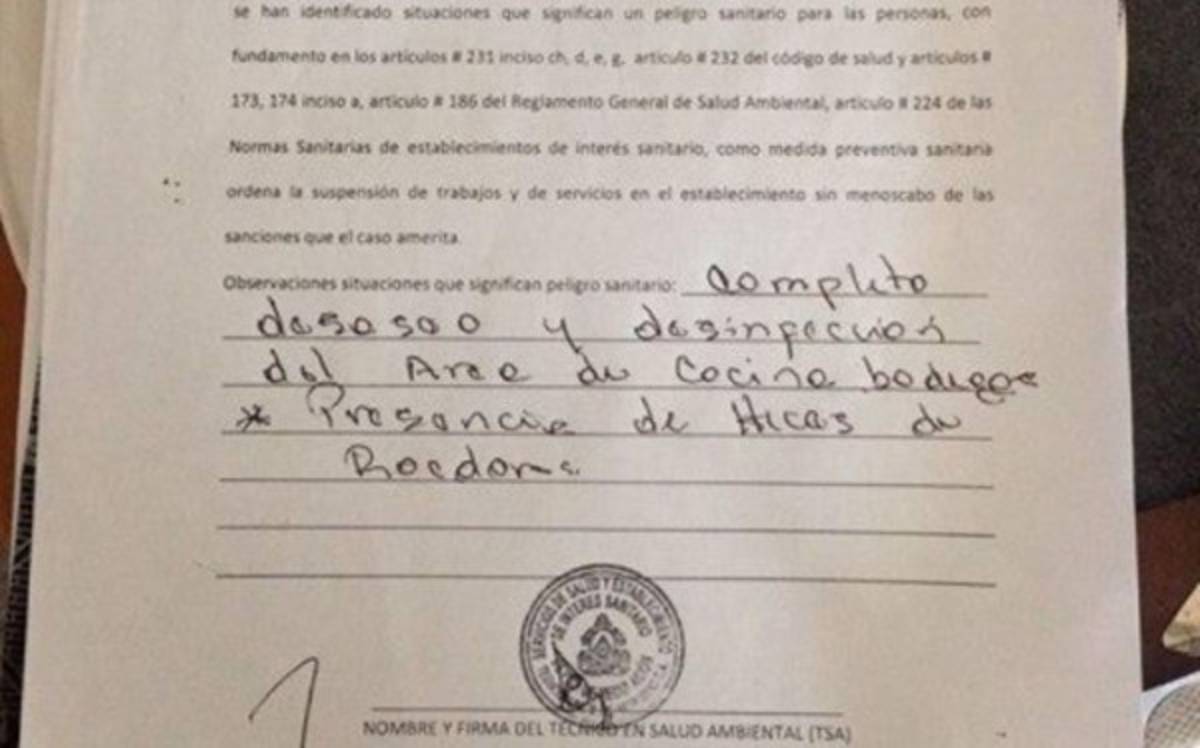 se han identificado situaciones que significan un peligro sanitario para las personas, con
fundamento en los articulos # 231 inciso ch, d, e, g, articulo # 232 del código de salud y articulos #
173, 174 inciso a, articulo # 186 del Reglamento General de Salud Ambiental, articulo # 224 de las
Normas Sanitarias de establecimientos de interés sanitario, como medida preventiva sanitaria
ordena la suspensión de trabajos y de servicios en el establecimiento sin menoscabo de las
sanciones que el caso amerita.
Observaciones situaciones que significan peligro sanitario: Completo
desaseo y desinfeccion
del Area de Cocina bodegas
* Presencia de Hecas de
Roedores.
SERVICIOS DE SALUD Y ESTABLECIMIENTO
DE INTERES SANITARIO
NOMBRE Y FIRMA DEL TECNICO EN SALUD AMBIENTAL (TSA)